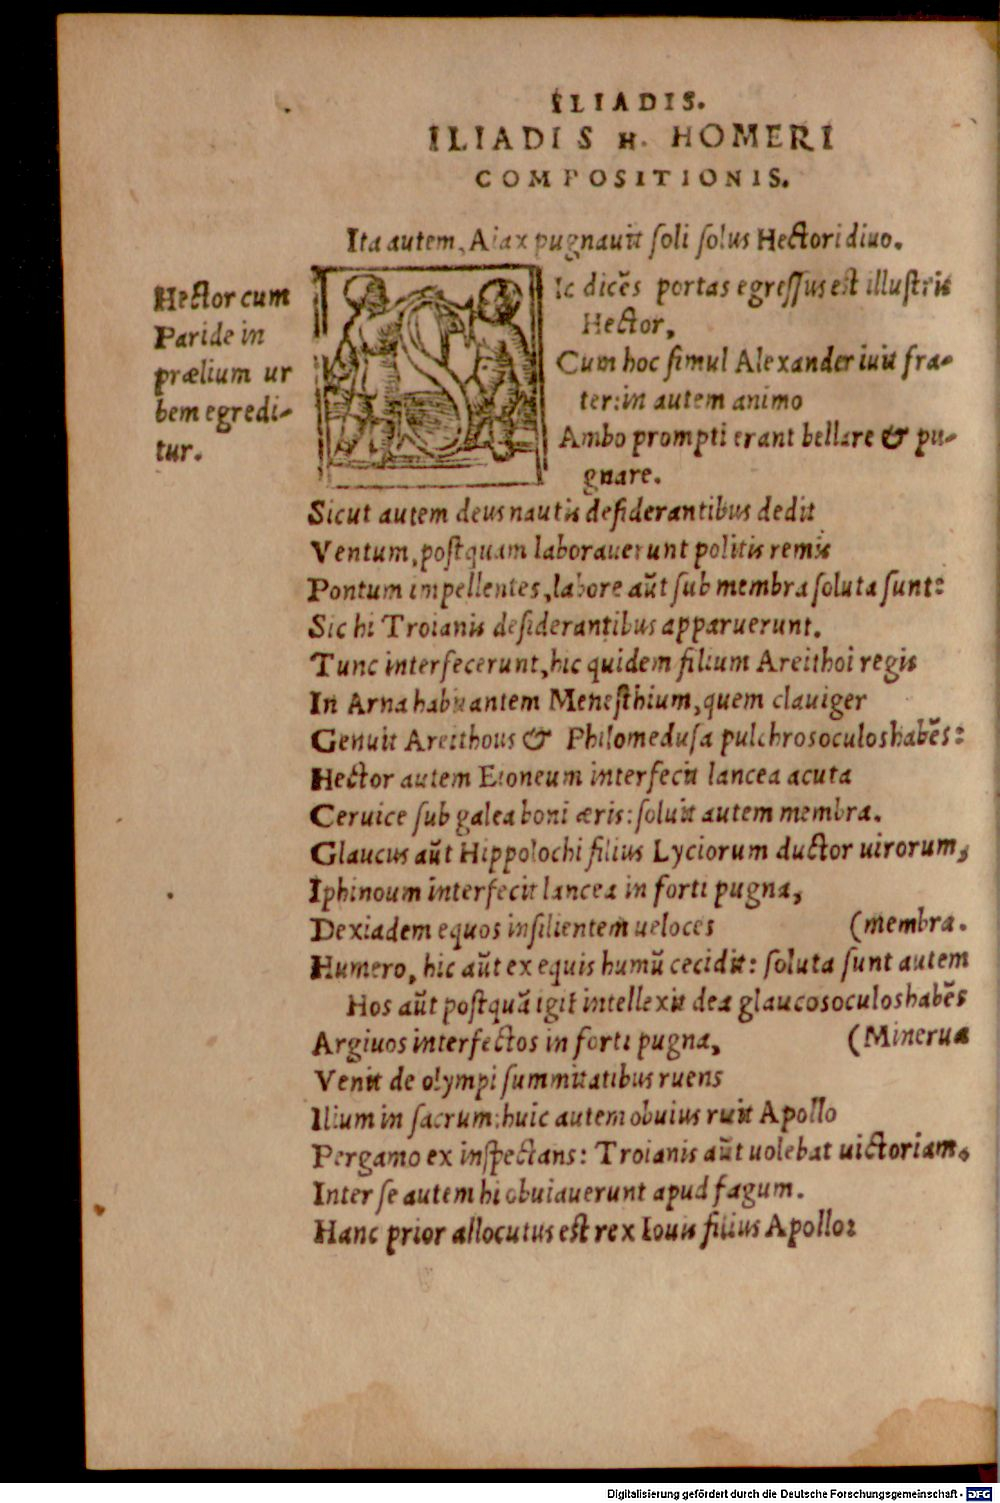 ILIADIS.
ILIADIS H. HOMERI
COMPOSITIONIS.
Ita autem, Aiax pugnauit soli solus Hectori diuo.
Hector cum
Paride in
prælium ur
bem egredi-
tur.
Ic dicẽs portas egressus est illustris
Hector,
Cum hoc simul Alexander iuit fra-
ter: in autem animo
Ambo prompti erant bellare & pu-
gnare.
Sicut autem deus nautis desiderantibus dedit
Ventum, postquam laborauerunt politis remis
Pontum impellentes, labore aũt sub membra soluta sunt:
Sic hi Troianis desiderantibus apparuerunt.
Tunc interfecerunt, hic quidem filium Areithoi regis
In Arna habitantem Menesthium, quem clauiger
Genuit Areithous & Philomedusa pulchros oculos habẽs:
Hector autem Eioneum interfecit lancea acuta
Ceruice sub galea boni æris: soluit autem membra.
Glaucus aũt Hippolochi filius Lyciorum ductor uirorum,
Iphinoum interfecit lancea in forti pugna,
Dexiadem equos insilientem ueloces (membra.
Humero, hic aũt ex equis humũ cecidit: soluta sunt autem
Hos aũt postquã igit intellexit dea glaucos oculos habẽs
Argiuos interfectos in forti pugna, (Minerua
Venit de olympi summitatibus ruens
Ilium in sacrum: huic autem obuius ruit Apollo
Pergamo ex inspectans: Troianis aũt uolebat uictoriam,
Inter se autem hi obuiauerunt apud fagum.
Hanc prior allocutus est rex Iouis filius Apollo:
Digitalisierung gefördert durch die Deutsche Forschungsgemeinschaft - DFG